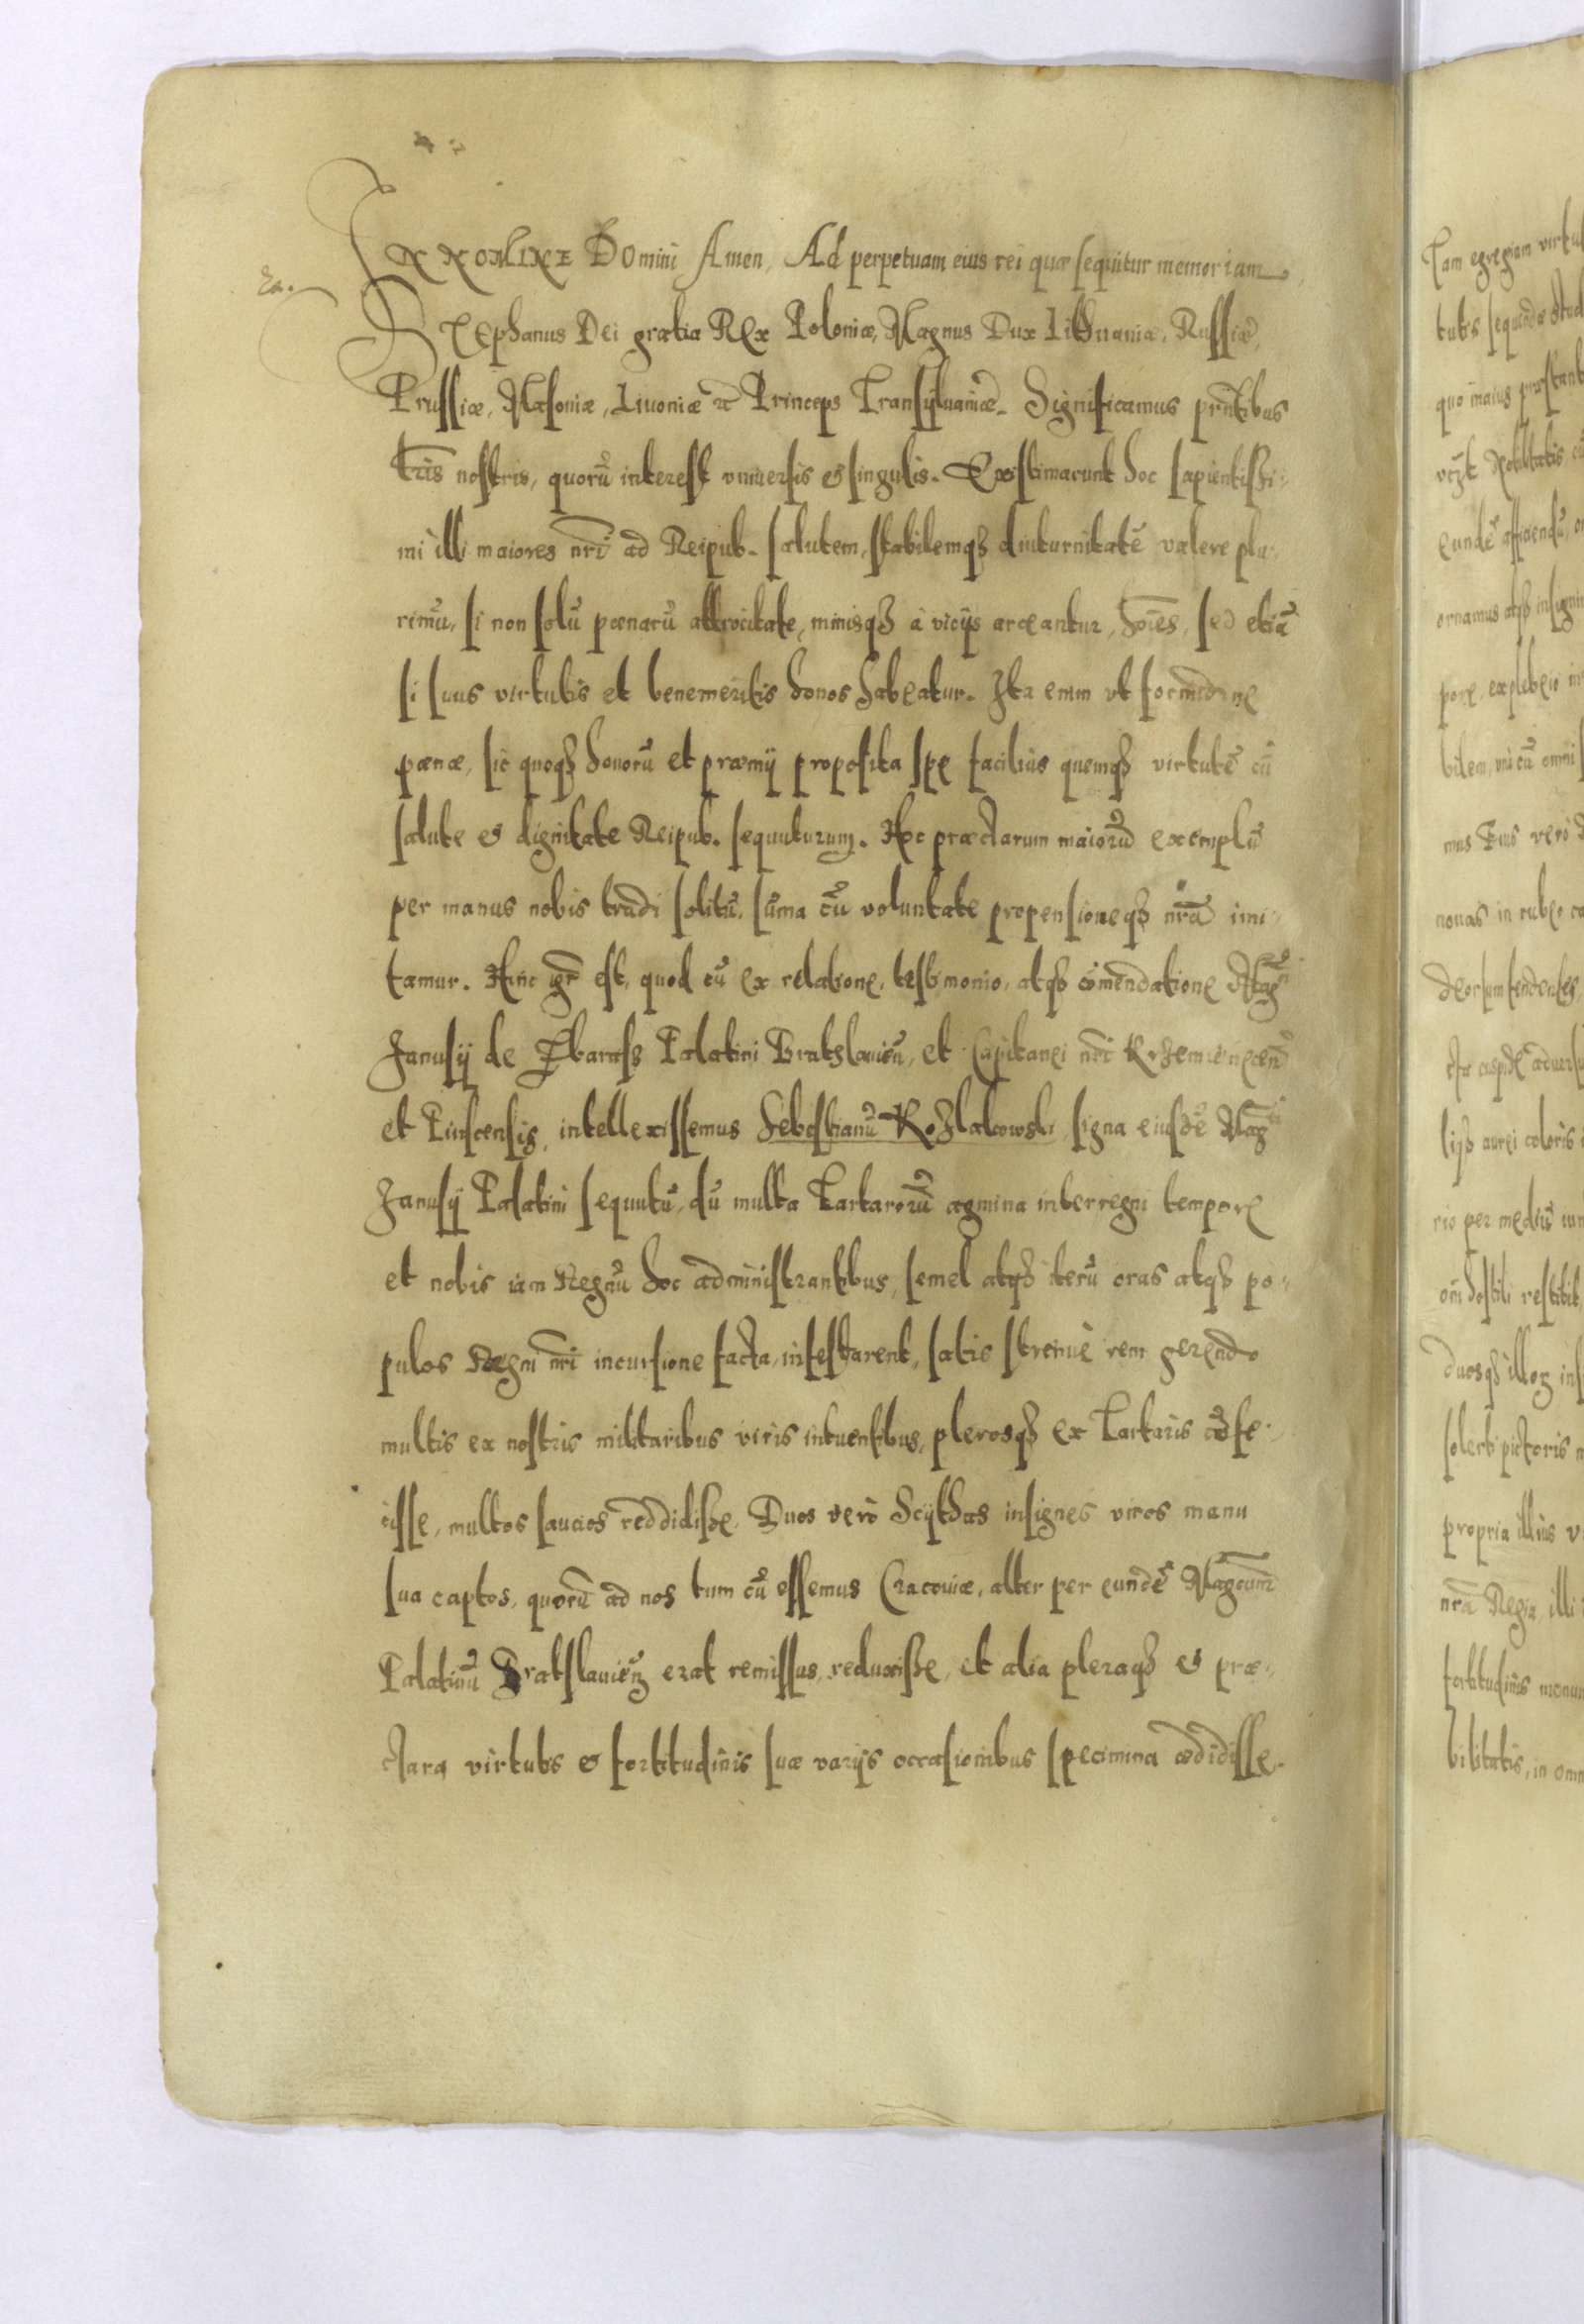 IN NOMINE DOmini Amen, Ad perpetuam eius rei quæ sequitur memoriam,
STEphanus Dei gratia REx Poloniæ, Magnus Dux Lithuaniæ, Russiæ,
Prussiæ, Masoniæ, Livoniæ etc Princeps Transyluaniæ. Significamus prñtibus
tris nostris, quorũ interest vniuersis et singulis. Existimarunt hoc sapientissi-
mi illi maiores nr̃i ad Reipub. salutem, stabilemqȝ diuturnitatẽ valere plu-
rimũ, si non solũ pœnarũ attrocitate, minisqȝ à vicijs arceantur, hoi͂es, sed etiã
si suus virtutis et benemeritis honos habeatur. Ita enim vt formidine
pœnæ, sic quoqȝ honorũ et præmij proposita spe facilius quemqȝ virtutẽ cũ
salute et dignitate Reipub. sequuturum. Hoc præclarum maiorũ exemplũ
per manus nobis tradi solitũ, sũma cũ voluntate propensioneqȝ nr̃a imi-
tamur. Hinc gr̃ est, quod cũ ex relatione, testimonio, atqȝ cõmendatione Mag̃ci
Janusij de Zbaraß Palatini Bratzlauieñ, et Capitanei nr̃i Krzemieneceñ
et Pinscensis, intellexissemus Sebestianũ Kozlakowski signa eiusdẽ Mag̃ci
Janusij Palatini sequutũ, dũ multa Tartarorũ agmina interregni tempore
et nobis iam Regnũ hoc administrantibus, semel atqȝ iterũ oras atqȝ po-
pulos Regni nr̃i incursione facta, infestarent, satis strenuè rem gerendo
multis ex nostris militaribus viris intuentibus, plerosqȝ ex Tartaris cõfe-
cisse, multos saucios reddidisse. Duos verò Scythas insignes viros manu
sua captos, quorũ ad nos tum cũ essemus Cracouiæ, alter per eundẽ Mag̃cum
Palatinũ Bratslauieñ erat remissus, reduxisse, et alia pleraqȝ et præ-
clara virtutis et fortitudinis suæ varijs occasionibus specimina ædidisse.
Tam egregiam
tutis
quo maius
vczt Nobilitatis
eundẽ
ornamus atqȝ
pore, ex plebeio
bilem, vni cũ omni
mus Eius verò
nouas in rubeo
deorsum tendentes,
cuspide
lijs aurei coloris
rio per mediũ
hostili restitit
duosqȝ illoꝝ
pictoris
propria illius
nr̃a Regia, illi
fortitudinis
bilitatis, in